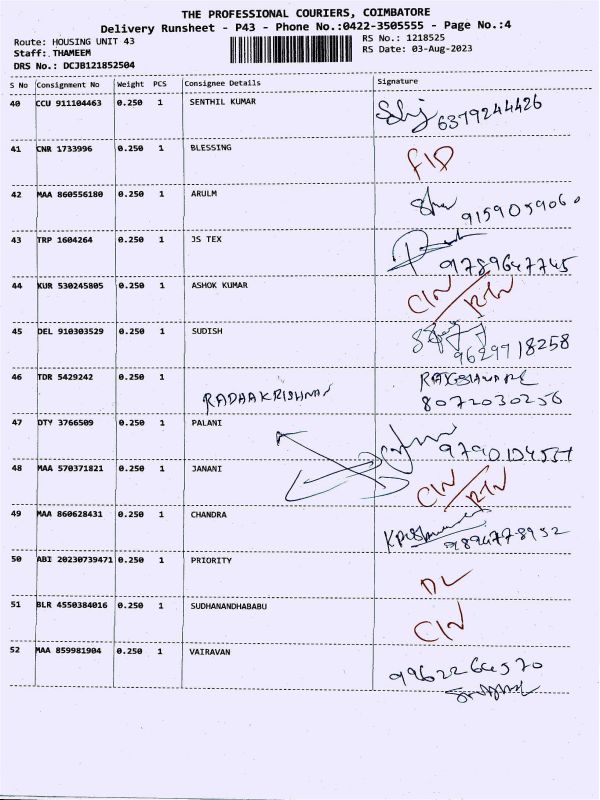 THE PROFESSIONAL COURIERS, COIMBATORE
Delivery Runsheet - P43 - Phone No.:0422-3505555 - Page No.:4
Route: HOUSING UNIT 43
Staff: THAMEEM
DRS No.: DCJB121852504
RS No.: 1218525
RS Date: 03-Aug-2023
S No Consignment No Weight PCS Consignee Details Signature
40 CCU 911104463 0.250 1 SENTHIL KUMAR 6379244426
41 CNR 1733996 0.250 1 BLESSING
42 MAA 860556180 0.250 1 ARULM 9159059060
43 TRP 1604264 0.250 1 JS TEX 9789647745
44 KUR 530245805 0.250 1 ASHOK KUMAR CIN/RTN
45 DEL 910303529 0.250 1 SUDISH 9629718258
46 TDR 5429242 0.250 1 RADHAKRISHNAN 8072030256
47 DTY 3766509 0.250 1 PALANI
48 MAA 570371821 0.250 1 JANANI CIN/RTN
49 MAA 860628431 0.250 1 CHANDRA
50 ABI 20230739471 0.250 1 PRIORITY DL
51 BLR 4550384016 0.250 1 SUDHANANDHABABU CIN
52 MAA 859981904 0.250 1 VAIRAVAN 9962264570